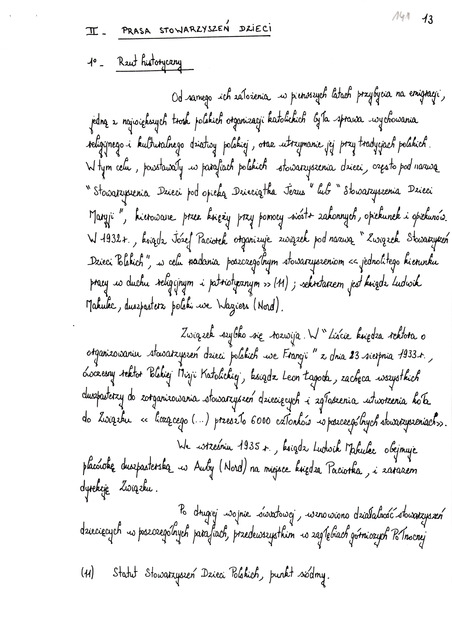 141 13
II - PRASA STOWARZYSZEŃ DZIECI
1° - Rzut historyczny
Od samego ich założenia w pierwszych latach przybycia na emigracji,
jedną z największych trosk polskich organizacji katolickich była sprawa wychowania
religijnego i kulturalnego dziatwy polskiej, oraz utrzymanie jej przy tradycjach polskich.
W tym celu, powstawały w parafiach polskich stowarzyszenia dzieci, często pod nazwą
"Stowarzyszenia Dzieci pod opieką Dzieciątka Jezus" lub "Stowarzyszenia Dzieci
Maryji", kierowane przez księży przy pomocy sióstr zakonnych, opiekunek i opiekunów.
W 1932 r., ksiądz Józef Paciorek organizuje związek pod nazwą "Związek Stowarzyszeń
Dzieci Polskich", w celu nadania poszczególnym stowarzyszeniom << jednolitego kierunku
pracy w duchu religijnym i patriotycznym >> (11) ; sekretarzem jest ksiądz Ludwik
Makulec, duszpasterz polski we Waziers (Nord).
Związek szybko się rozwija. W "Liście księdza rektora o
organizowaniu stowarzyszeń dzieci polskich we Francji" z dnia 23 sierpnia 1933 r.,
ówczesny rektor Polskiej Misji Katolickiej, ksiądz Leon Łagoda, zachęca wszystkich
duszpasterzy do zorganizowania stowarzyszeń dziecięcych i zgłoszenia utworzenia koła
do Związku << liczącego (...) przeszło 6000 członków w poszczególnych stowarzyszeniach >>.
We wrześniu 1935 r., ksiądz Ludwik Makulec obejmuje
placówkę duszpasterską w Auby (Nord) na miejsce księdza Paciorka, i zarazem
dyrekcję Związku.
Po drugiej wojnie światowej, wznowiono działalność stowarzyszeń
dziecięcych w poszczególnych parafiach, przedewszystkim w zagłębiach górniczych Północnej
(11) Statut Stowarzyszeń Dzieci Polskich, punkt siódmy.